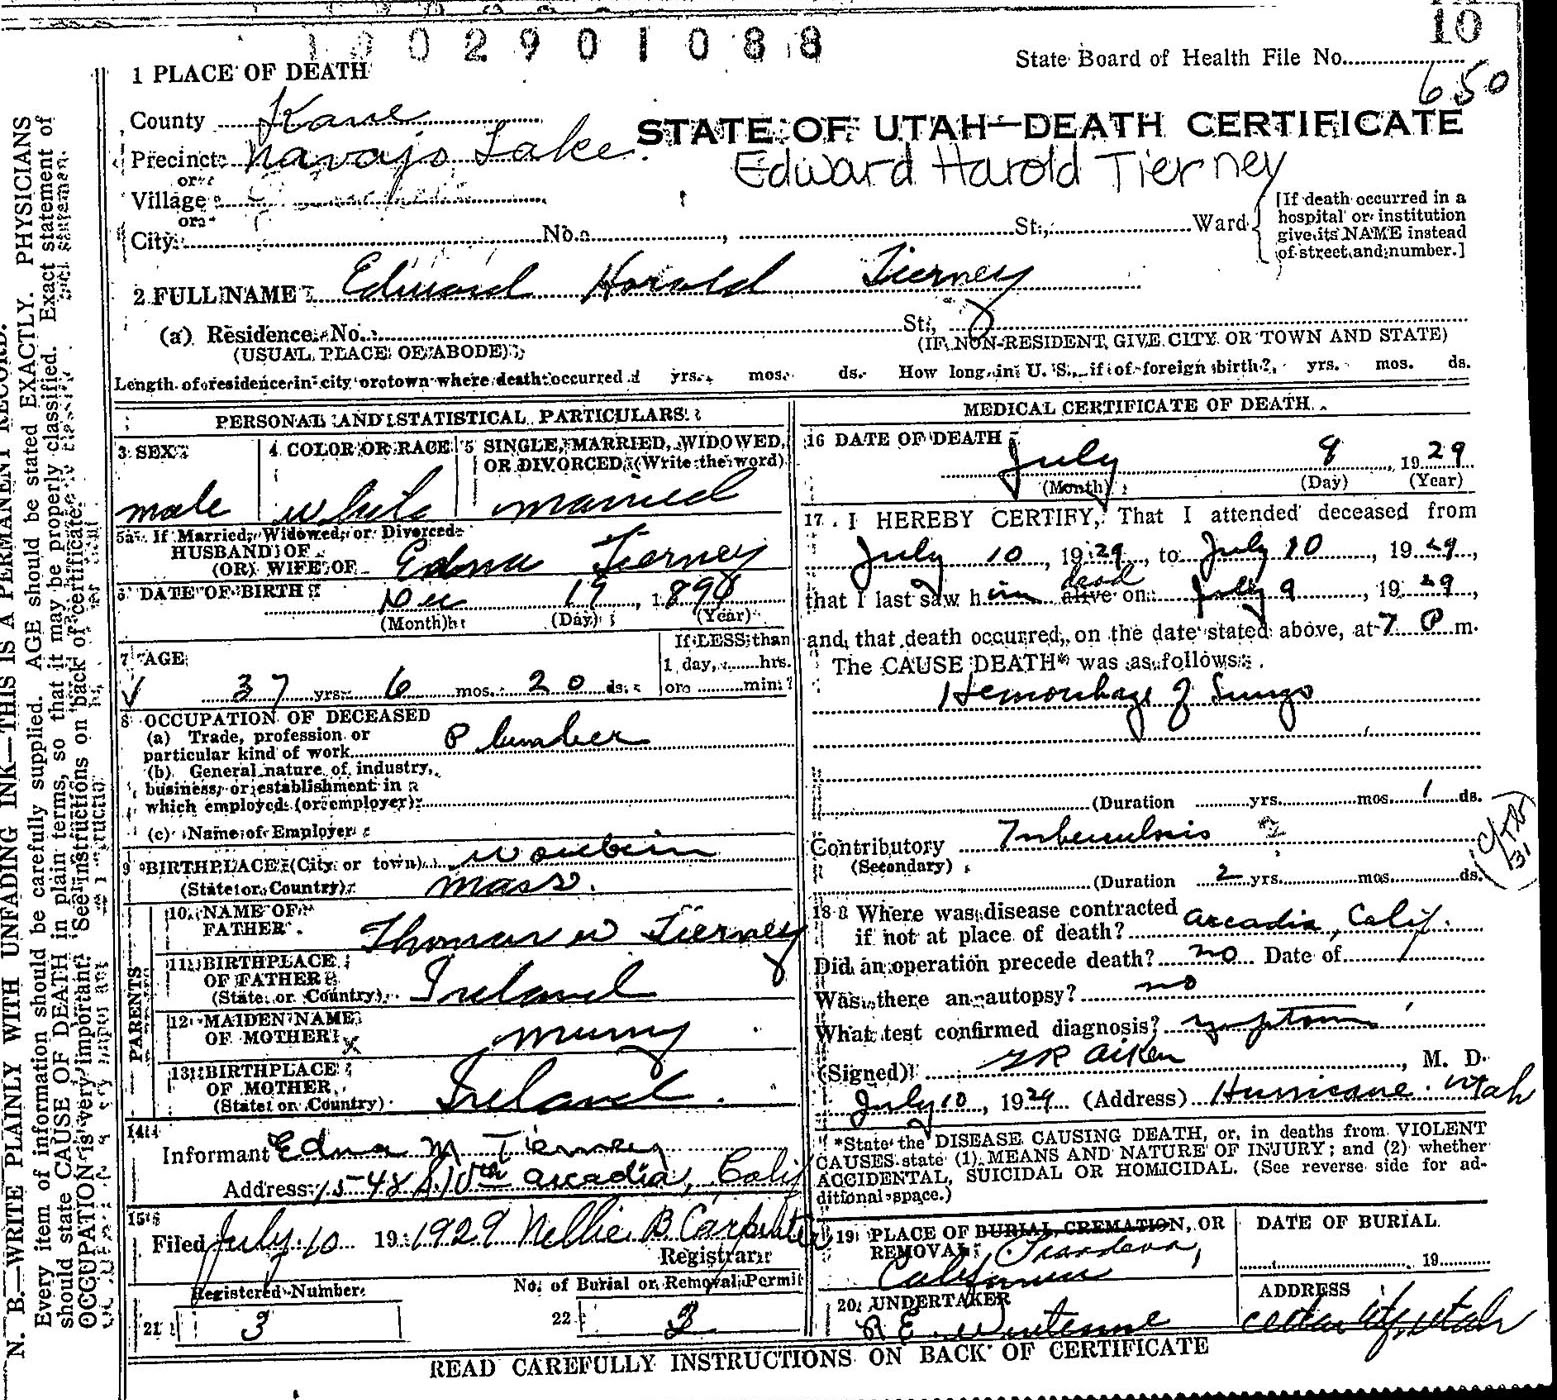 10
1002901088
State Board of Health File No.
650
1 PLACE OF DEATH
County Kane
STATE OF UTAH—DEATH CERTIFICATE
Precinct Navajo Lake.
Edward Harold Tierney
or
Village
or
City No. , St., Ward
[If death occurred in a hospital or institution give its NAME instead of street and number.]
2 FULL NAME Edward Harold Tierney
(a) Residence. No. St.,
(USUAL PLACE OF ABODE) (IF NON-RESIDENT, GIVE CITY OR TOWN AND STATE)
Length of residence in city or town where death occurred yrs. mos. ds. How long in U. S., if of foreign birth? yrs. mos. ds.
PERSONAL AND STATISTICAL PARTICULARS
3 SEX male
4 COLOR OR RACE white
5 SINGLE, MARRIED, WIDOWED, OR DIVORCED (Write the word) married
5a If Married, Widowed, or Divorced
HUSBAND OF
(OR) WIFE OF Edna Tierney
6 DATE OF BIRTH Dec 19, 189
(Month) (Day) (Year)
7 AGE 37 yrs. 6 mos. 20 ds.
If LESS than
1 day, hrs.
or min?
8 OCCUPATION OF DECEASED
(a) Trade, profession or
particular kind of work Plumber
(b) General nature of industry,
business, or establishment in
which employed (or employer)
(c) Name of Employer
9 BIRTHPLACE (City or town) Wouburn
(State or Country) Mass.
PARENTS
10 NAME OF
FATHER Thomas W Tierney
11 BIRTHPLACE
OF FATHER
(State or Country) Ireland
12 MAIDEN NAME
OF MOTHER x Murry
13 BIRTHPLACE
OF MOTHER
(State or Country) Ireland.
14
Informant Edna M Tierney
Address 1548 S 10th Arcadia, Calif
15
Filed July 10 19 1929 Nellie B Carpenter
Registrar
Registered Number
No. of Burial or Removal Permit
21 3
22 3
MEDICAL CERTIFICATE OF DEATH
16 DATE OF DEATH
July 9, 1929
(Month) (Day) (Year)
17 I HEREBY CERTIFY, That I attended deceased from
July 10, 1929, to July 10, 1929,
that I last saw him alive dead on July 9, 1929,
and that death occurred, on the date stated above, at 7 P m.
The CAUSE DEATH* was as follows:
Hemorrhage of Lungs
(Duration yrs. mos. 1 ds.
Contributory Tuberculosis
(Secondary)
(Duration 2 yrs. mos. ds.
31
18 Where was disease contracted
if not at place of death? Arcadia, Calif.
Did an operation precede death? no Date of
Was there an autopsy? no
What test confirmed diagnosis? symptoms
(Signed) Aiken, M. D.
July 10, 1929 (Address) Hurricane. Utah
*State the DISEASE CAUSING DEATH, or, in deaths from VIOLENT
CAUSES state (1) MEANS AND NATURE OF INJURY; and (2) whether
ACCIDENTAL, SUICIDAL OR HOMICIDAL. (See reverse side for ad-
ditional space.)
19 PLACE OF BURIAL, CREMATION, OR
REMOVAL
California
DATE OF BURIAL
19
20 UNDERTAKER
R E
ADDRESS
Cedar City Utah
READ CAREFULLY INSTRUCTIONS ON BACK OF CERTIFICATE
N. B.—WRITE PLAINLY WITH UNFADING INK—THIS IS A PERMANENT RECORD.
Every item of information should be carefully supplied. AGE should be stated EXACTLY. PHYSICIANS
should state CAUSE OF DEATH in plain terms, so that it may be properly classified. Exact statement of
OCCUPATION is very important. See instructions on back of certificate.